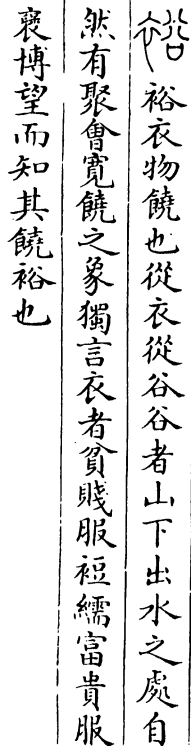 裕 裕衣物饒也從衣從谷谷者山下出水之處自
然有聚會寬饒之象獨言衣者貧賤服裋繻富貴服
襃博望而知其饒裕也